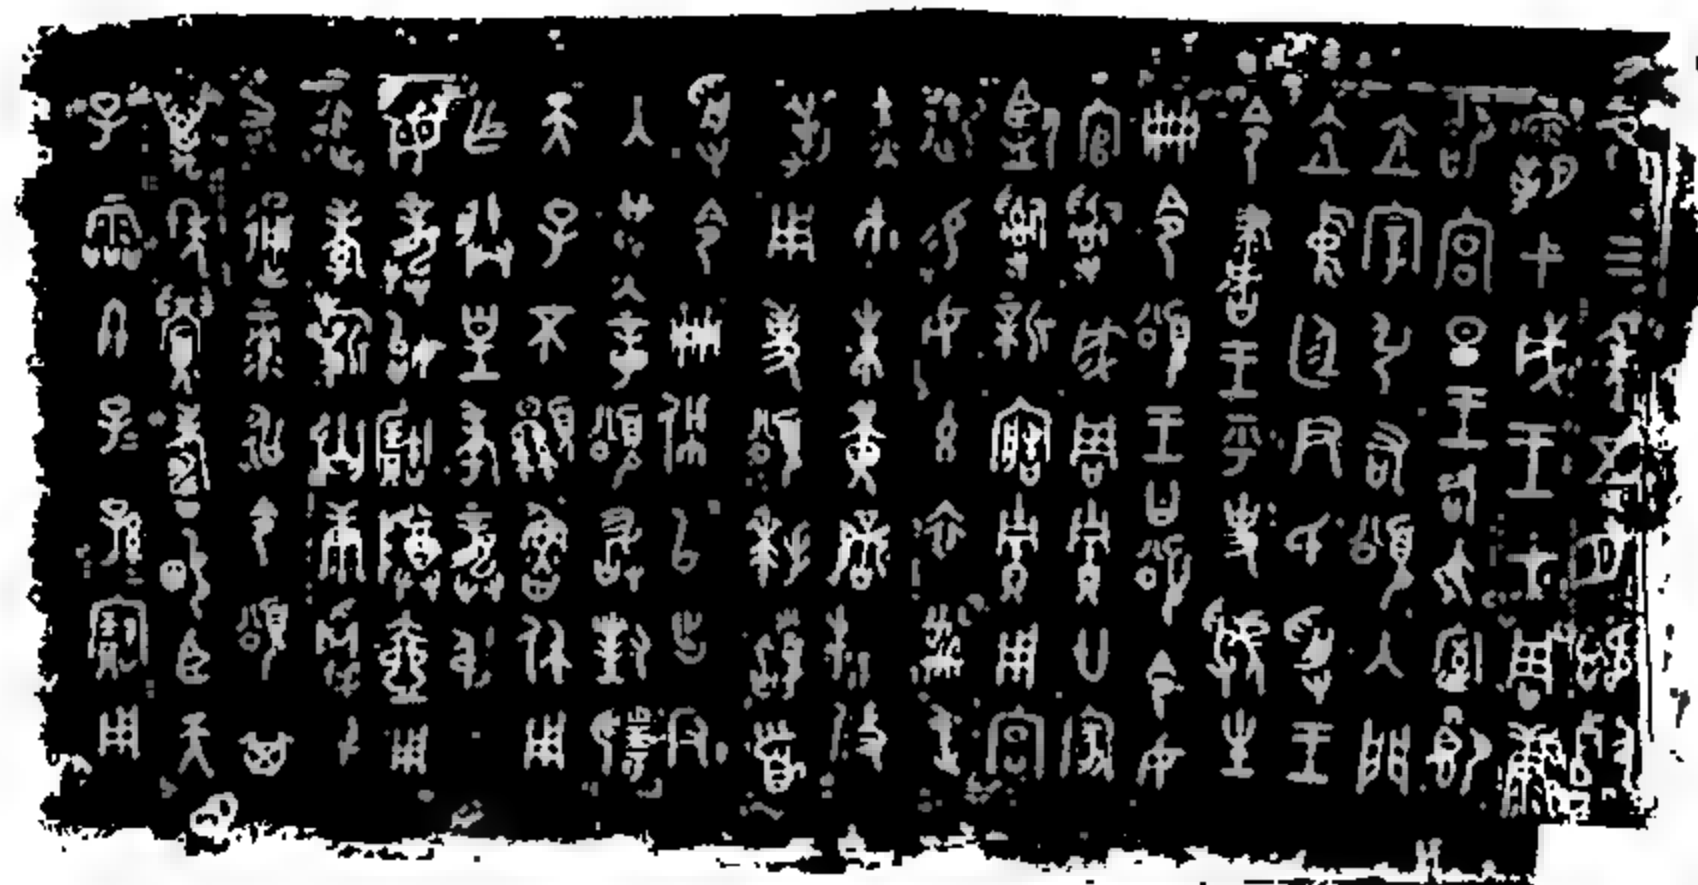 隹三年五月既死
霸甲戌王才周康
卲宮旦王各大室即
立宰弘右頌入門
立中廷尹氏受王
令書王乎史虢生
冊令頌王曰頌令女
官𤔲成周貯廿家
監𤔲新造貯用宮
御易女玄衣黹屯
赤巿朱黃䜌旂攸
勒用事頌拜𩒨首
受令冊佩以出反
入堇章頌敢對揚
天子不顯魯休用
乍朕皇考龏弔皇
母龏始寶尊壺用
追孝𣄨匄康𩁹屯
右通彔永令頌其
萬年眉壽畯臣天
子霝冬子子孫孫寶用